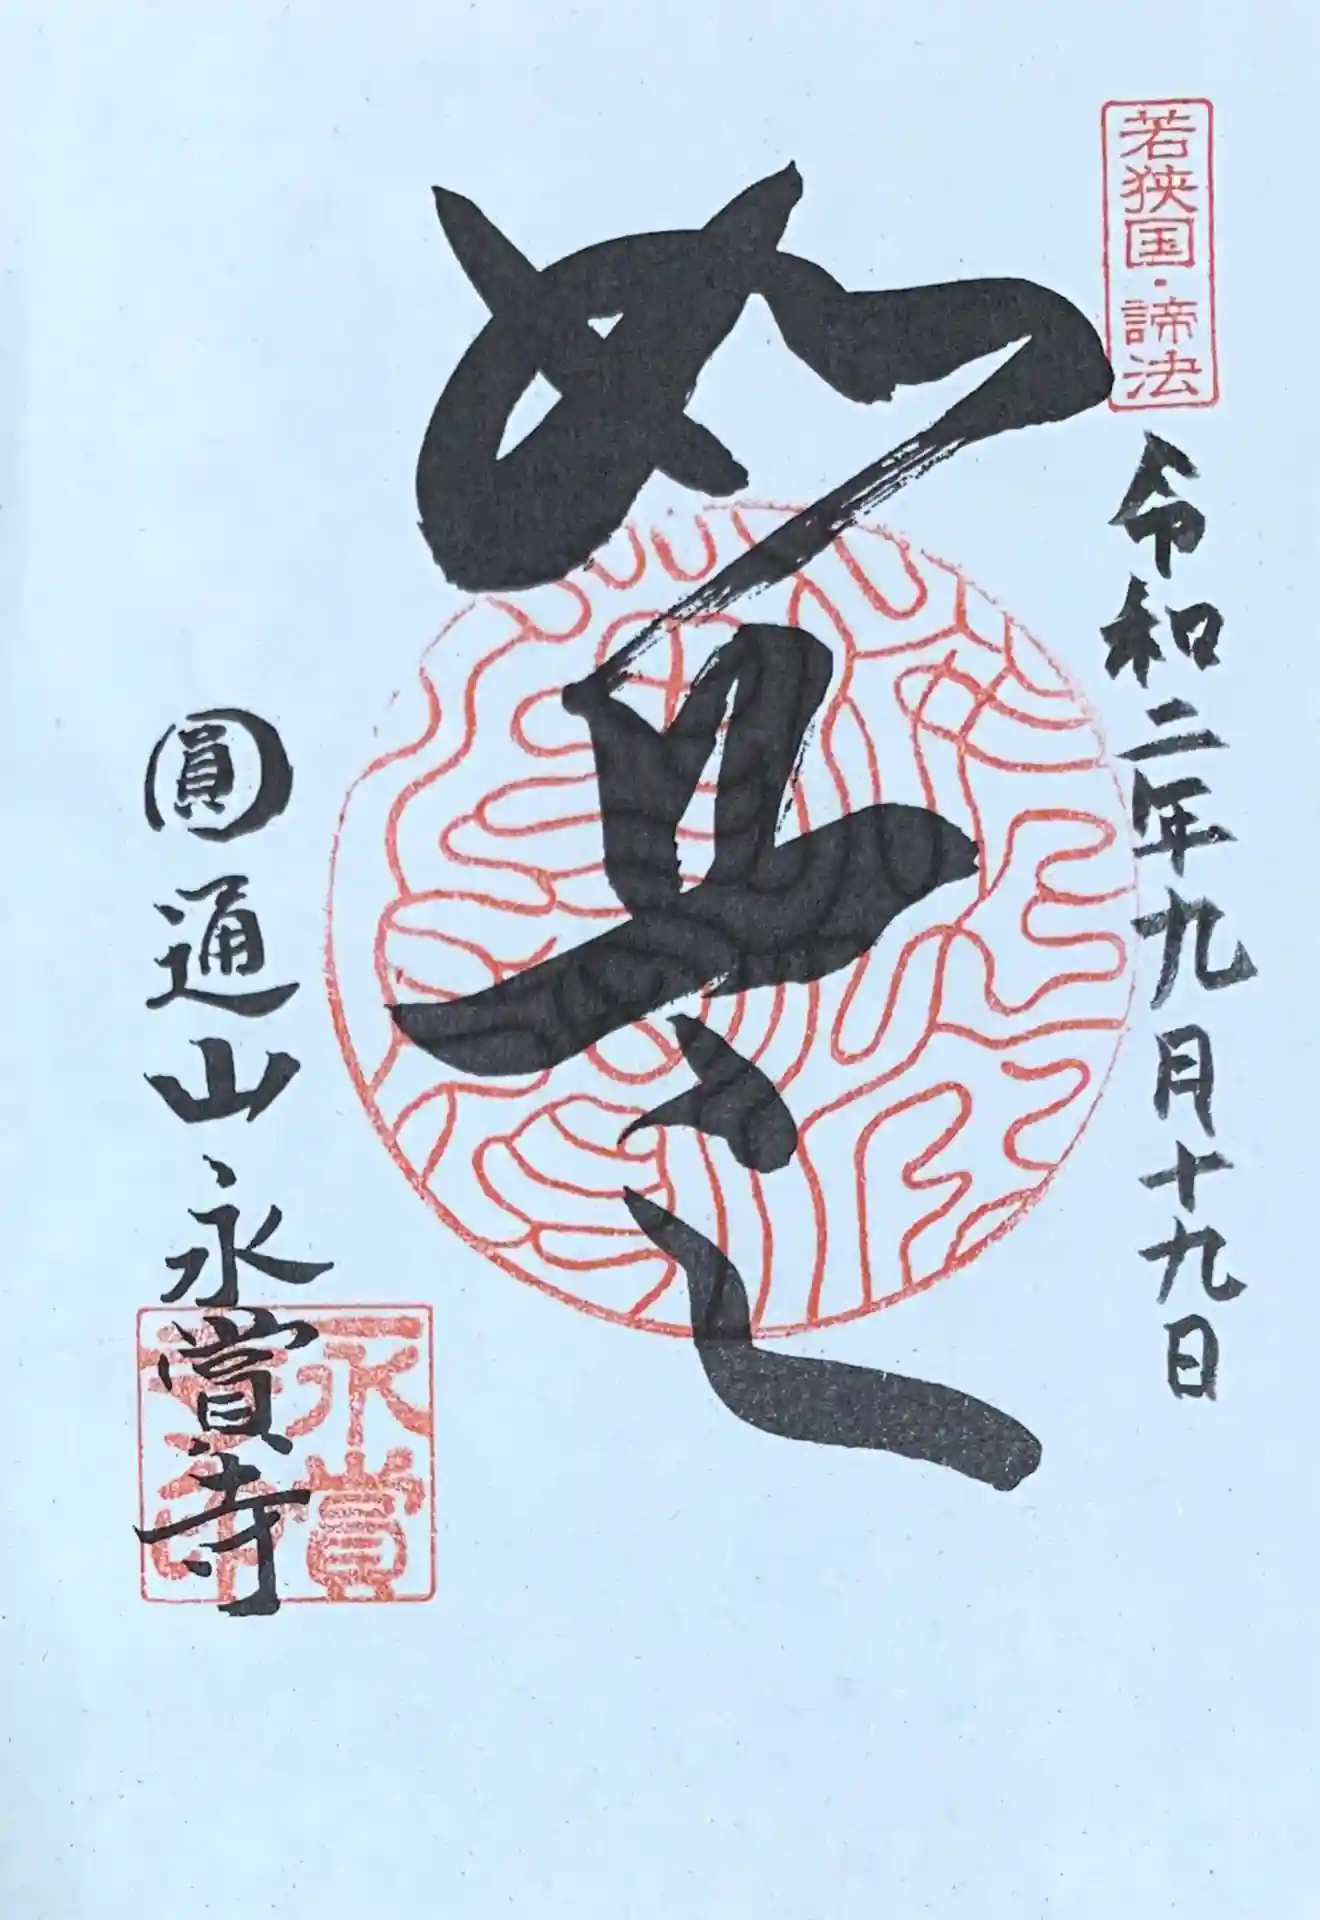 若狭国・諦法
令和二年九月十九日
如是
圓通山永賞寺
永賞
寺印